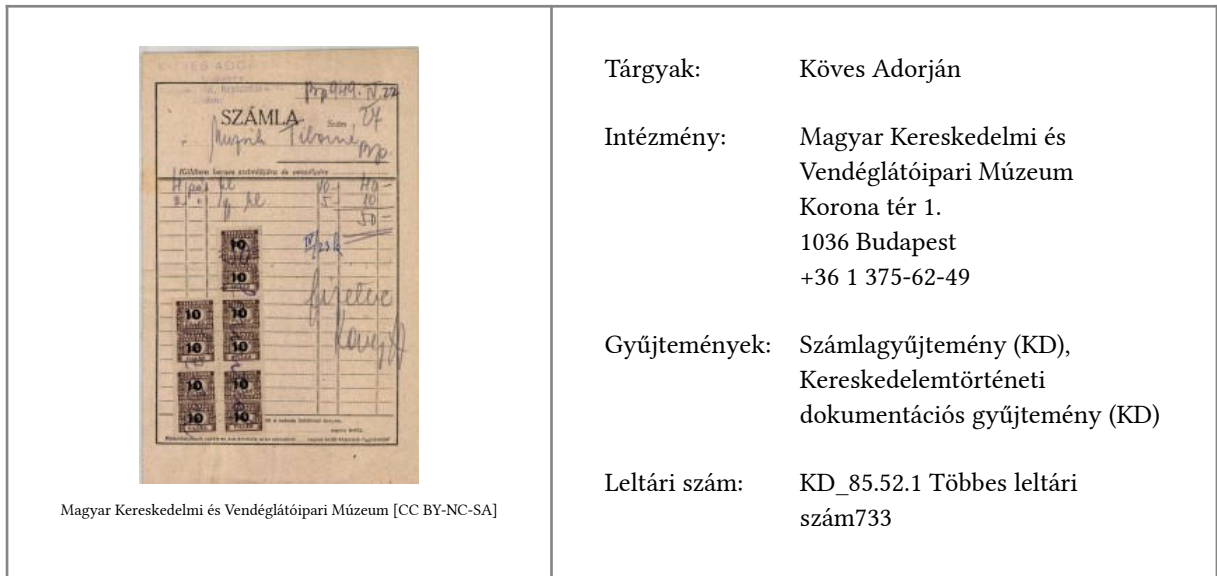 SZÁMLA
Szám
27
Tiborné
Bp.
4 pár
10.- 40.-
2 " 5.- 10
50.-
IV/23
10
10
10 10
10 10
10 10
10 10
fizetve
Magyar Kereskedelmi és Vendéglátóipari Múzeum [CC BY-NC-SA]
Tárgyak: Köves Adorján
Intézmény: Magyar Kereskedelmi és
Vendéglátóipari Múzeum
Korona tér 1.
1036 Budapest
+36 1 375-62-49
Gyűjtemények: Számlagyűjtemény (KD),
Kereskedelemtörténeti
dokumentációs gyűjtemény (KD)
Leltári szám: KD_85.52.1 Többes leltári
szám733